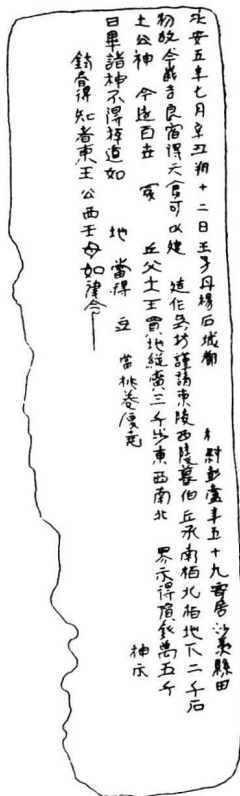 永安五年七月辛丑朔十二日壬子丹楊石城都 尉彭盧年五十九寄居沙羡縣田
物故今歲吉良宿得天倉可以建 造作冢坊謹請東陵西陵暮伯丘承南栢北栢地下二千石
土公神 今造百世 冢 丘父土王買地縱廣三千步東西南北 界示得價錢萬五千
日畢諸神不得 道如 地當得豆 當桃卷復 神示
得知者東王公西王母如律令